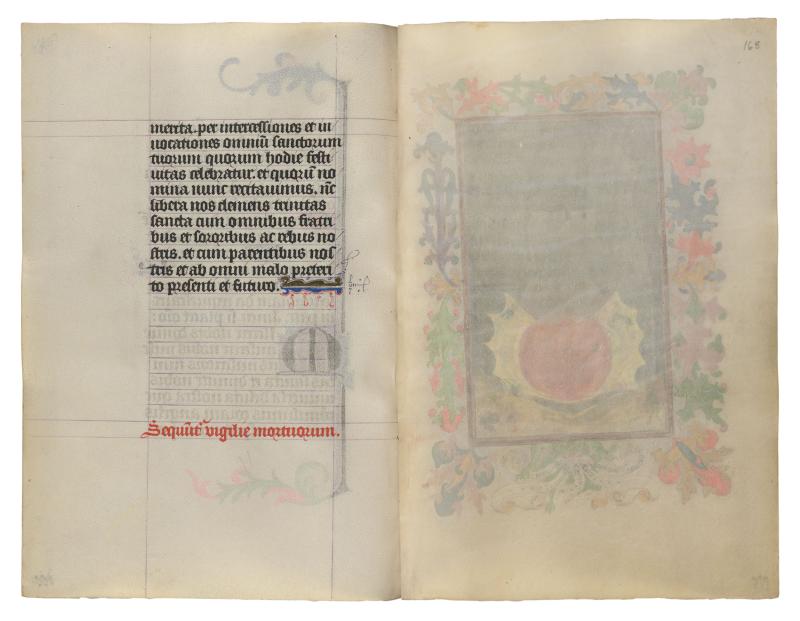 merita. per intercessiones et in
uocationes omniū sanctorum
tuorum quorum hodie festi
uitas celebratur. et quorū no
mina nunc recitauimus. nc̄
libera nos clemens trinitas
sancta cum omnibus fratri
bus et sororibus ac rebus no
stris. et cum parentibus nos
tris et ab omni malo preteri
to presenti et futuro.
Sequūt᷑ vigilie mortuorum.
168